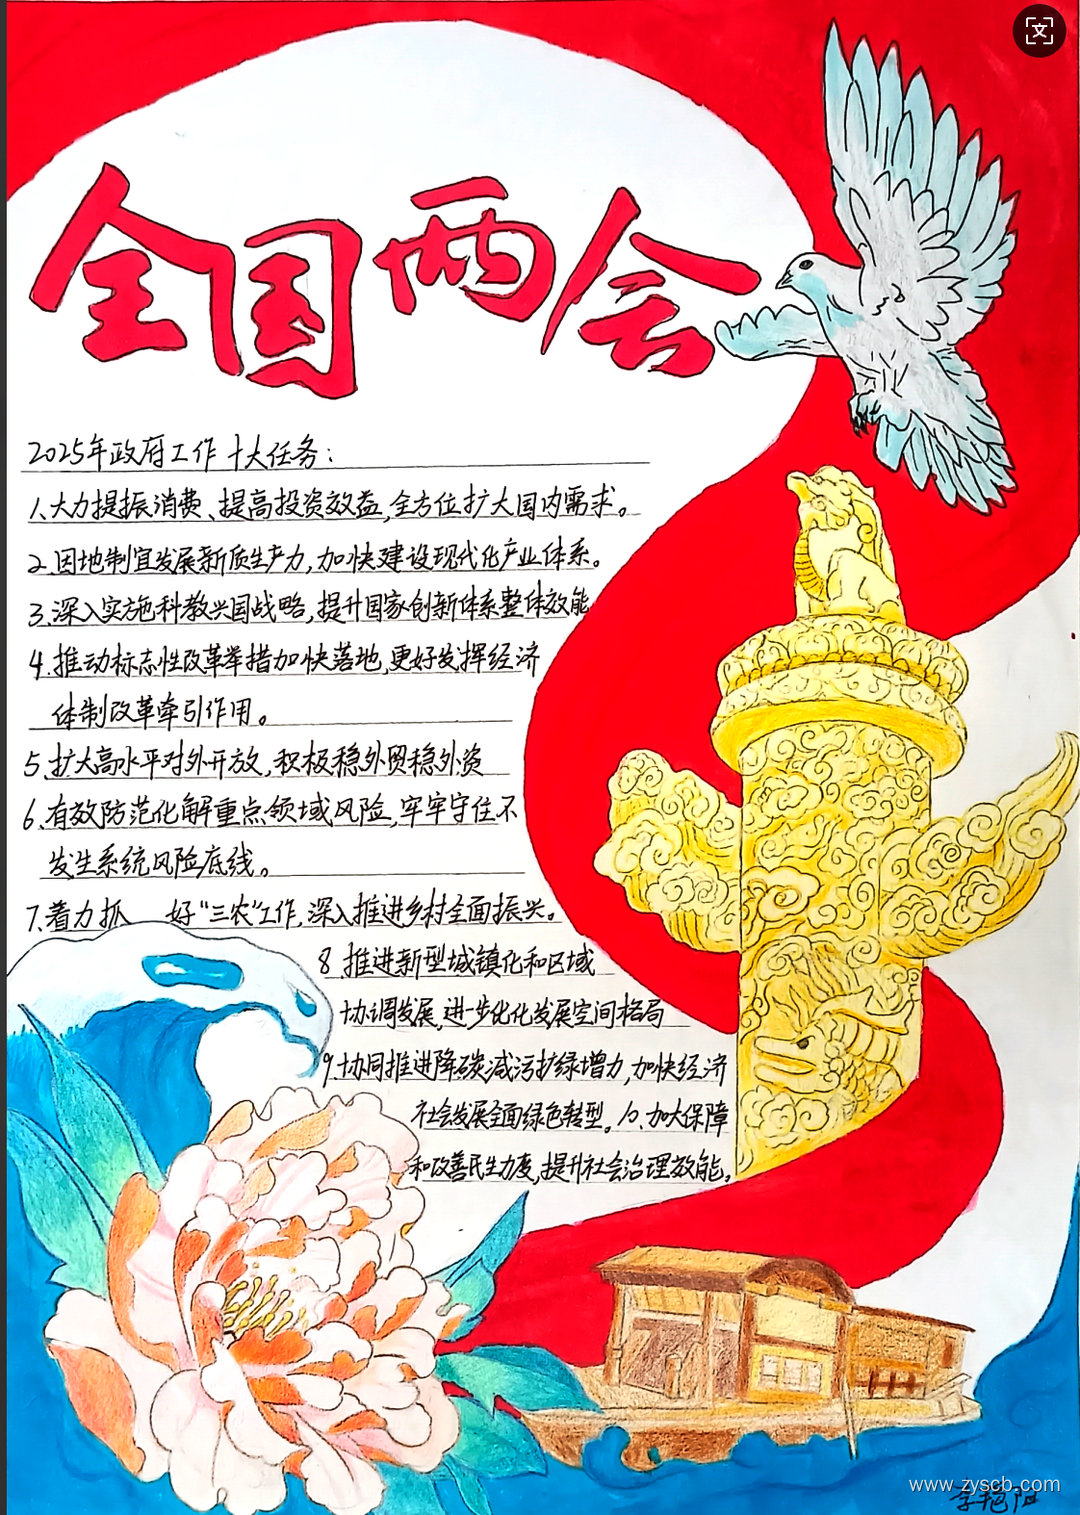 全国两会
2025年政府工作十大任务：
1.大力提振消费、提高投资效益,全方位扩大国内需求。
2.因地制宜发展新质生产力,加快建设现代化产业体系。
3.深入实施科教兴国战略,提升国家创新体系整体效能
4.推动标志性改革举措加快落地,更好发挥经济
体制改革牵引作用。
5.扩大高水平对外开放,积极稳外贸稳外资
6、有效防范化解重点领域风险,牢牢守住不
发生系统风险底线。
7.着力抓 好“三农”工作,深入推进乡村全面振兴。
8.推进新型城镇化和区域
协调发展,进一步化化发展空间格局
9.协同推进降碳减污扩绿增力,加快经济
社会发展全面绿色转型。10.加大保障
和改善民生力度,提升社会治理效能。
www.zyscb.com
李艳阳